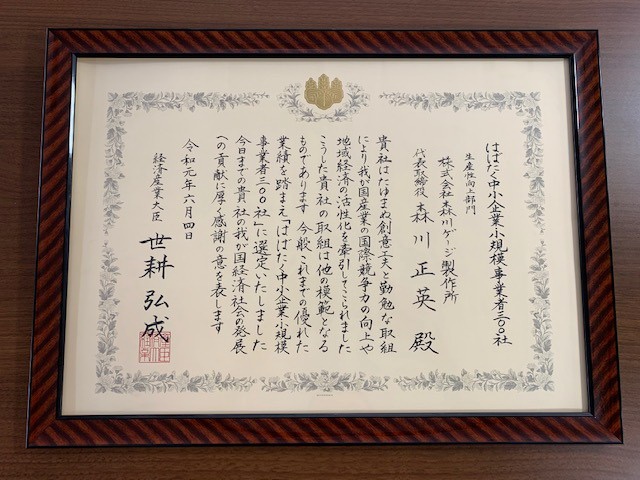 はばたく中小企業・小規模事業者三〇〇社
生産性向上部門
株式会社森川ゲージ製作所
代表取締役 森川正英 殿
貴社はたゆまぬ創意工夫と勤勉な取組
により我が国産業の国際競争力の向上や
地域経済の活性化を牽引してこられました
こうした貴社の取組は他の模範となる
ものであります 今般これまでの優れた
業績を踏まえ「はばたく中小企業・小規模
事業者三〇〇社」に選定いたしました
今日までの貴社の我が国経済社会の発展
への貢献に厚く感謝の意を表します
令和元年六月四日
経済産業大臣 世耕弘成